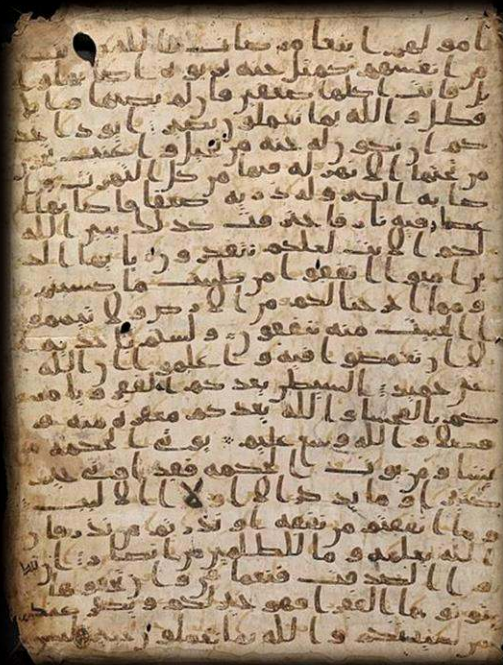 امولهم ابتغا مرضات الله و تثبيتا
من انفسهم كمثل جنه بربوه اصابها وا
بل فاتت اكلها ضعفين فان لم يصبها وابل
فطل و الله بما تعملون بصير ايود احد
كم ان تكون له جنه من نخيل و اعنب تجرى
من تحتها الانهر له فيها من كل الثمرت و ا
صابه الكبر و له ذريه ضعفا فاصابها ا
عصار فيه نار فاحترقت كذلك يبين الله
لكم الايت لعلكم تتفكرون يايها الذ
ين امنوا انفقوا من طيبت ما كسبتم
و مما اخرجنا لكم من الارض و لا تيممو
ا الخبيث منه تنفقون و لستم باخذيه ا
لا ان تغمضوا فيه و اعلموا ان الله
غنى حميد الشيطن يعدكم الفقر و يامر
كم بالفحشا و الله يعدكم مغفره منه و
فضلا و الله وسع عليم يوتى الحكمه من
يشا و من يوت الحكمه فقد اوتى خيرا
كثيرا و ما يذكر الا اولوا الالبب
و ما انفقتم من نفقه او نذرتم من نذر فان
الله يعلمه و ما للظلمين من انصار ان
تبدوا الصدقت فنعما هى و ان تخفوها
و توتوها الفقرا فهو خير لكم و يكفر عنكم
من سياتكم و الله بما تعملون خبير ليس